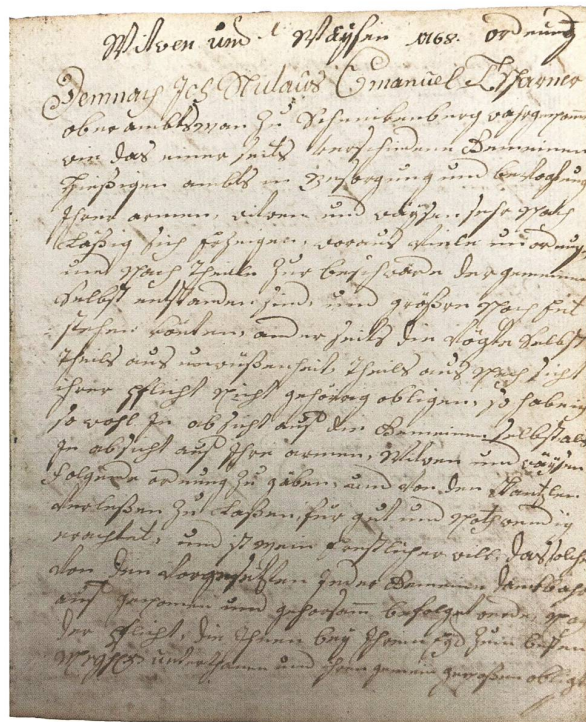 Witwen und Waÿsen 1768. ordnung
Demnach Ich Niclaus Emanuel Tscharner
ober ambtsman zu Schenkenberg wahrgenomm
wie das einer seits verschiedene Gemeinen
hiesigen ambts in Besorgung und
Ihrer armen, witwen und waÿsen sehr Nach
Läßig sich Erzeigen, woraus viele unordnung
und Nach Theile zur beschwärde der gemein
Selbst entstanden sind, und größere Noch Ent
stehen könten, ander seits die Vögte Selbst
Theils aus unwüßenheit, Theils aus Nach sicht
ihrer Pflicht Nicht gehörig obligen, So habe
so wohl In absicht auf die Gemeinen Selbst als
In absicht auf Ihre armen, Witwen und waÿsen
Folgende ordnung zu gäben, und von den Kantzlen
verleßen zu Laßen für gut und Nothwendig
erachtet, und ist mein Ernstlicher will, das solche
von den Vorgesetzten Jeder Gemeind dankbahr
auf genomen und gehorsamm befolget werde, Nach
der Pflicht, die Ihnen beÿ Ihrem Eÿd zum besten
unterthanen und ihrer gemein genoßen obligt